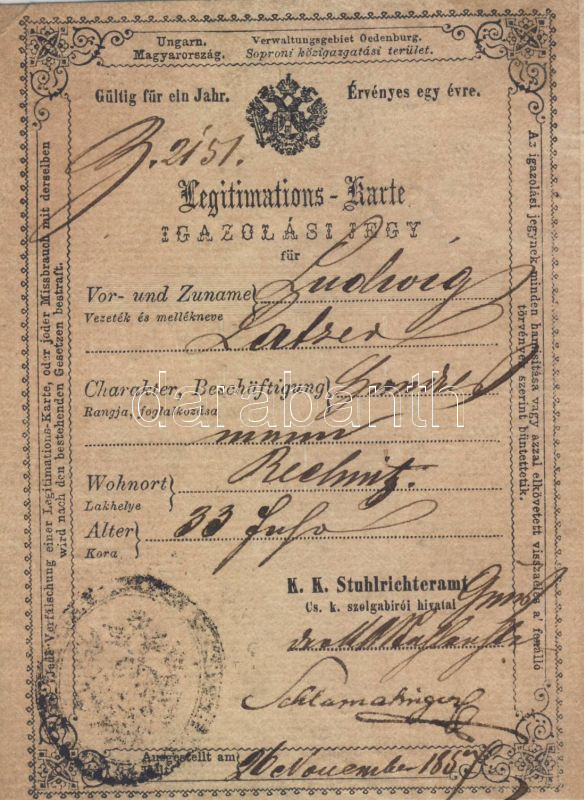 Ungarn.
Magyarország.
Verwaltungsgebiet Oedenburg.
Soproni közigazgatási terület.
Gültig für ein Jahr.
Érvényes egy évre.
2151.
Legitimations-Karte
IGAZOLÁSI JEGY
für
Vor- und Zuname Ludwig
Vezeték és mellékneve
Latzer
Charakter, Beschäftigung Handels
Rangja, foglalkozása
mann
Wohnort Rechnitz.
Lakhelye
Alter 33 Jahr
Kora
K. K. Stuhlrichteramt
Cs. k. szolgabirói hivatal
Schlamadinger
Ausgestellt am
26 November 1857
Jede Verfälschung einer Legitimations-Karte, oder jeder Missbrauch mit derselben
wird nach den bestehenden Gesetzen bestraft.
Az igazolási jegynek minden hamisitása vagy azzal elkövetett visszaélés a' fenálló
törvények szerint büntettetik.
darabanth